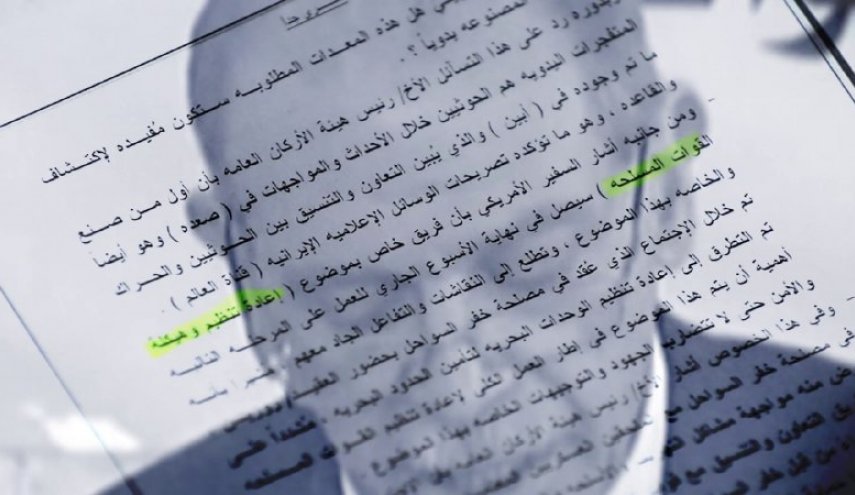 سري جدا
هل هذه المعدات المطلوبه ستكون مُفيده لإكتشاف
المصنوعه يدوياً ؟ .
بدوره رد على هذا التسائل الأخ/ رئيس هيئة الأركان العامه بأن أول من صنع
المتفجرات اليدويه هم الحوثيين خلال الأحداث والمواجهات في ( صعده ) وهو أيضاً
ما تم وجوده في ( أبين ) والذي يُبين التعاون والتنسيق بين الحوثيين والحراك
والقاعده ، وهو ما تؤكده تصريحات الوسائل الإعلاميه الإيرانيه ( قناة العالم ) .
- ومن جانبه أشار السفير الأمريكي بأن فريق خاص بموضوع ( إعادة تنظيم وهيكلة
القوات المسلحه ) سيصل في نهاية الأسبوع الجاري للعمل على المرحله التاليه
والخاصه بهذا الموضوع ، ونتطلع إلى النقاشات والتفاعل الجاد معهم
تم خلال الإجتماع الذي عُقد في مصلحة خفر السواحل بحضور العقيد/
تم التطرق إلى إعادة تنظيم الوحدات البحريه لتأمين الحدود البحريه ،
أهمية أن يتم هذا الموضوع في إطار العمل الكلي لإعادة تنظيم القوات المسلحه
والأمن حتى لا تتضارب الجهود والتوجيهات الخاصه بهذا الموضوع
- وفي هذا الخصوص أشار الأخ/ رئيس هيئة الأركان العامه بأن
في مصلحة خفر السواحل مع
منه مواجهة مشاكل
التعاون والتنسيق مع
من قبل خفر